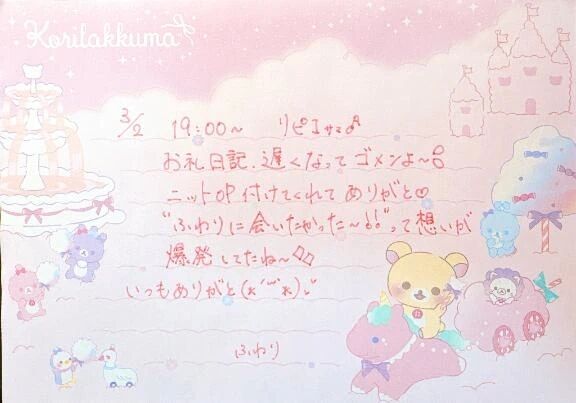 Korilakkuma
3/2 19:00~ リピエサマ♪
お礼日記、遅くなってゴメンよ~
ニットOP付けてくれてありがと♡
"ふわりに会いたかった~!!"って想いが
爆発してたね~◇◇
いつもありがと(*´꒳`*)
ふわり